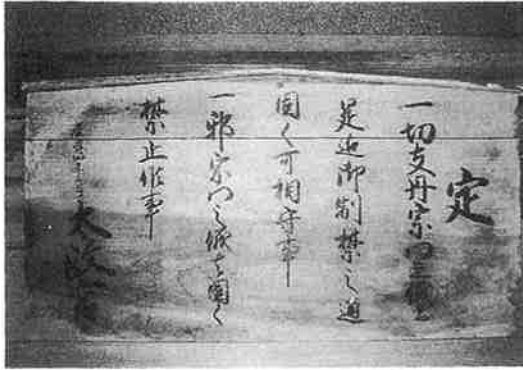 定
一切支丹宗門之儀は
是迄御制禁之通
固く可相守事
一邪宗門之儀は固く
禁止候事
太政官